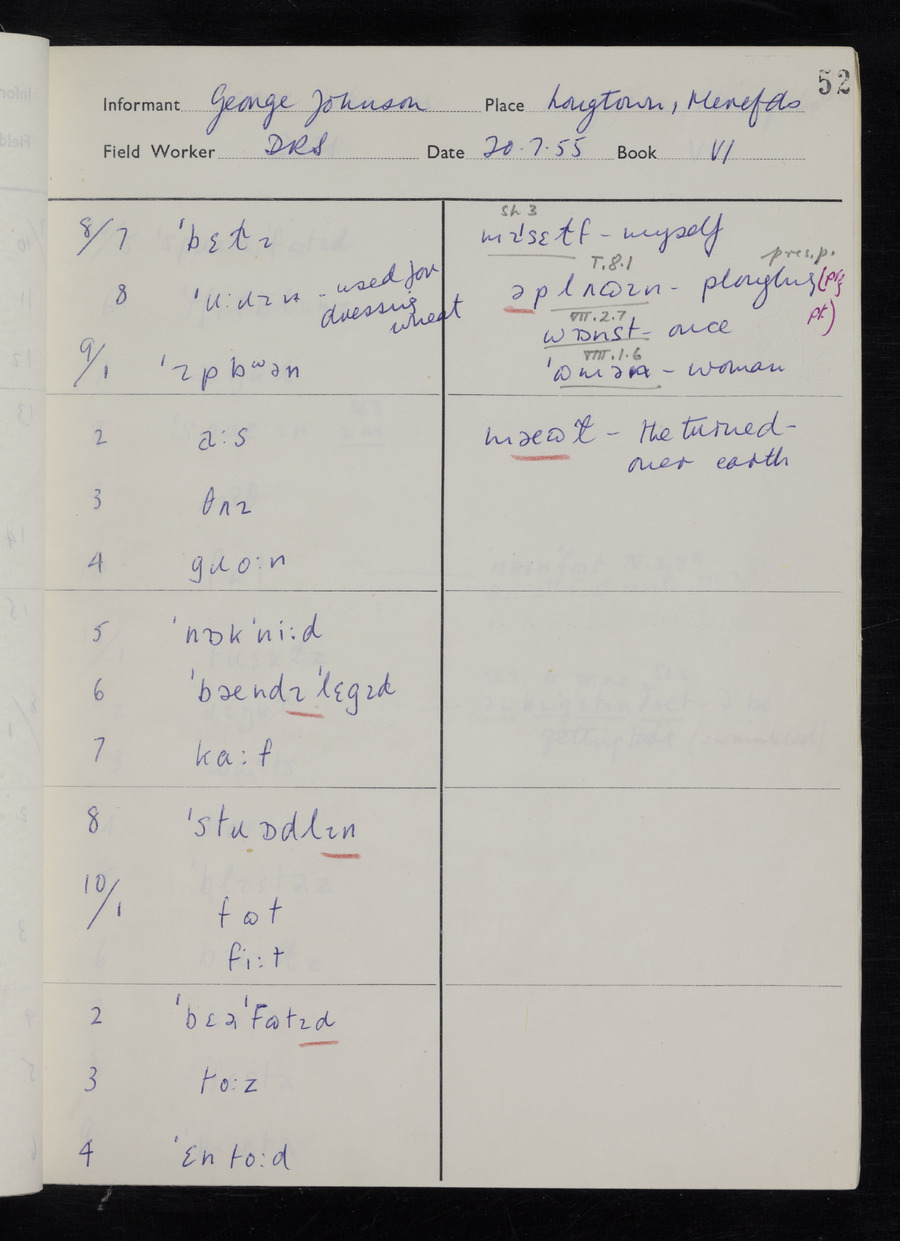 52
Informant George Johnson Place Longtown, Herefds
Field Worker DRS Date 20.7.55 Book VI
8/7 ˈbɛɫt
8 - used for
dressing
wheat
9/1
2 a:s
3 θʌɪ
4 gɹɔ:n
5 ˈnɒkˈni:d
6 ˈbændɪˈlɛgɪd
7 ka:f
8 ˈstɹɒdlɪn
10/1 fʊt
fi:t
2 ˈbɛəˈfʊtɪd
3 to:z
4 ˈɛn to:d
Sh 3
mɪˈsɛɫf - myself
pres.p.
T.8.1
əplʌʊɪn - ploughing (prs
pt)
VII.2.7
wɒnst - once
VIII.1.6
ˈʊmən - woman
- the turned-
over earth